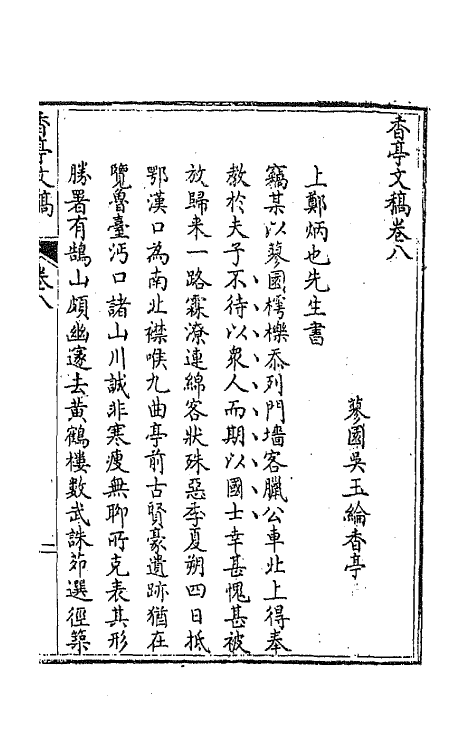 香亭文稿卷八
蓼園吳玉綸香亭
上鄭炳也先生書
竊某以蓼園樗櫟忝列門墻客臘公車北上得奉
教於夫子不待以衆人而期以國士幸甚愧甚被
放歸来一路霖潦連綿客狀殊惡季夏朔四日抵
鄂漢口為南北襟喉九曲亭前古賢豪遺跡猶在
覽魯臺沔口諸山川誠非寒瘦無聊所克表其形
勝署有鵠山頗幽邃去黃鶴樓數武誅茆選徑築
香亭文稿
卷八
一